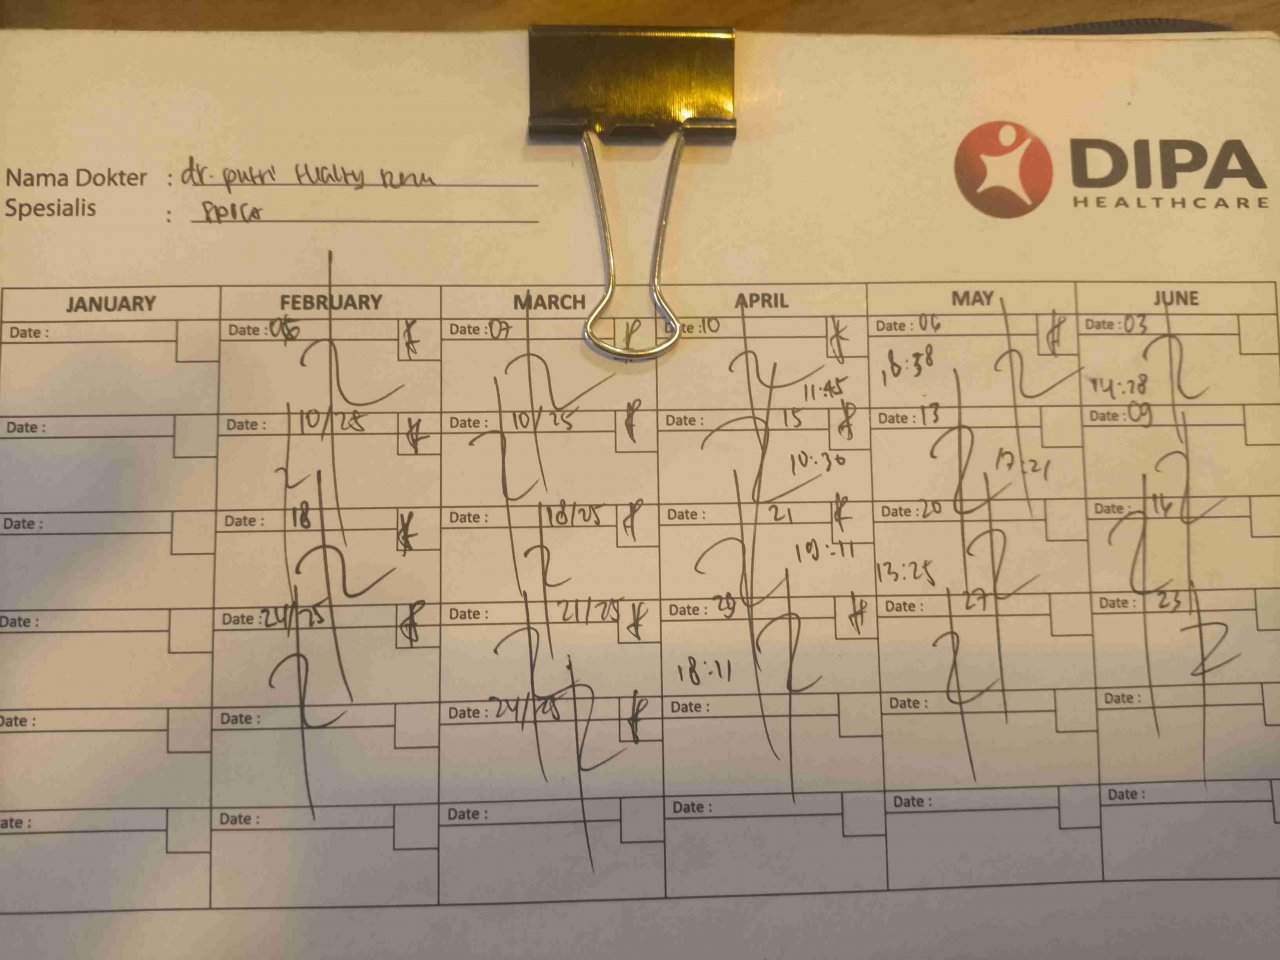 DIPA
HEALTHCARE
Nama Dokter : dr. putri
Spesialis :
JANUARY FEBRUARY MARCH APRIL MAY JUNE
Date : Date : Date : 07 Date : 10 Date : 06 Date : 03
11:45 18:38 14:28
Date : Date : 10/25 Date : 10/25 Date : 15 Date : 13 Date : 09
10:30 17:21
Date : Date : 18 Date : 18/25 Date : 21 Date : 20 Date :
19:11 13:25
Date : Date : 24/25 Date : 21/25 Date : 29 Date : 27 Date : 23
18:11
Date : Date : Date : 24/25 Date : Date : Date :
Date : Date : Date : Date : Date : Date :